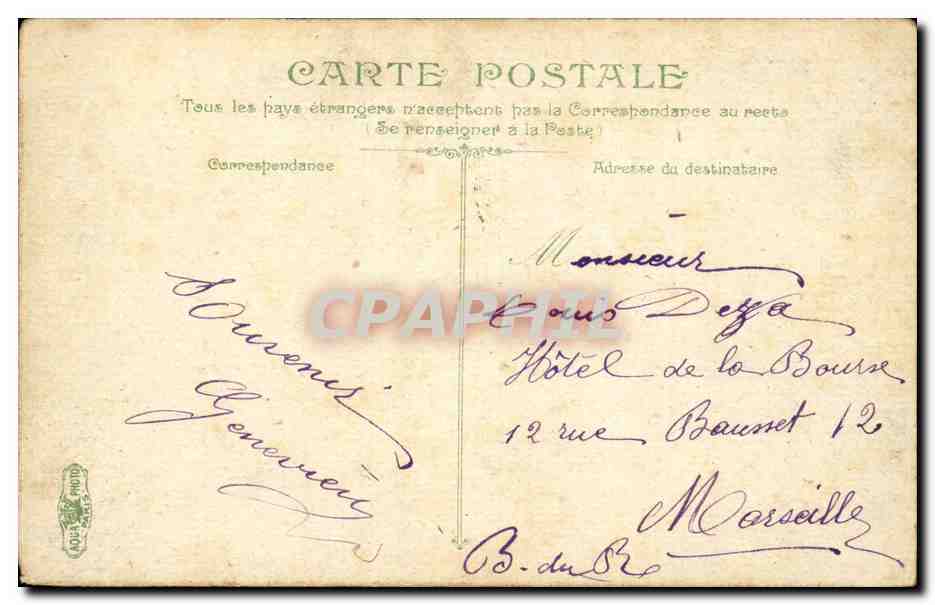 CARTE POSTALE
Tous les pays étrangers n'acceptent pas la Correspondance au recto
(Se renseigner à la Poste)
Correspondance
Adresse du destinataire
Souvenir
Geneviève
Monsieur
Louis
Hôtel de la Bourse
12 rue Bausset 12
Marseille
B. du R
CPAPHIL
AQUA PHOTO
PARIS